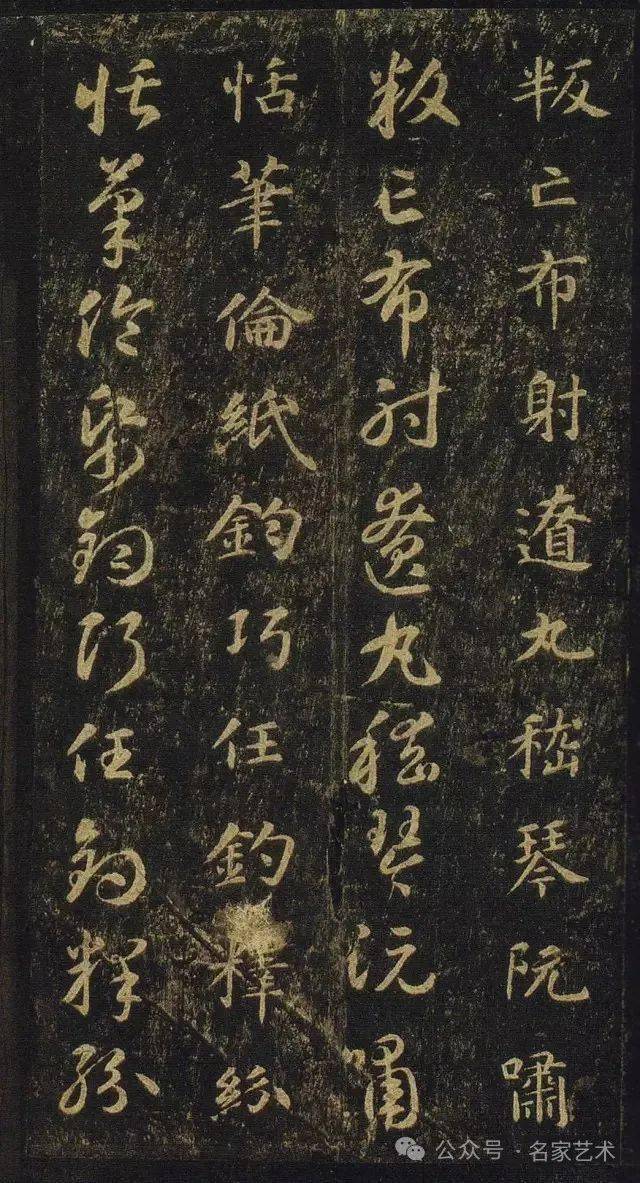 叛亡布射遼丸嵇琴阮嘯
叛亡布射遼丸嵇琴阮嘯
恬筆倫紙鈞巧任釣釋紛
恬筆倫紙鈞巧任釣釋紛
公众号 · 名家艺术